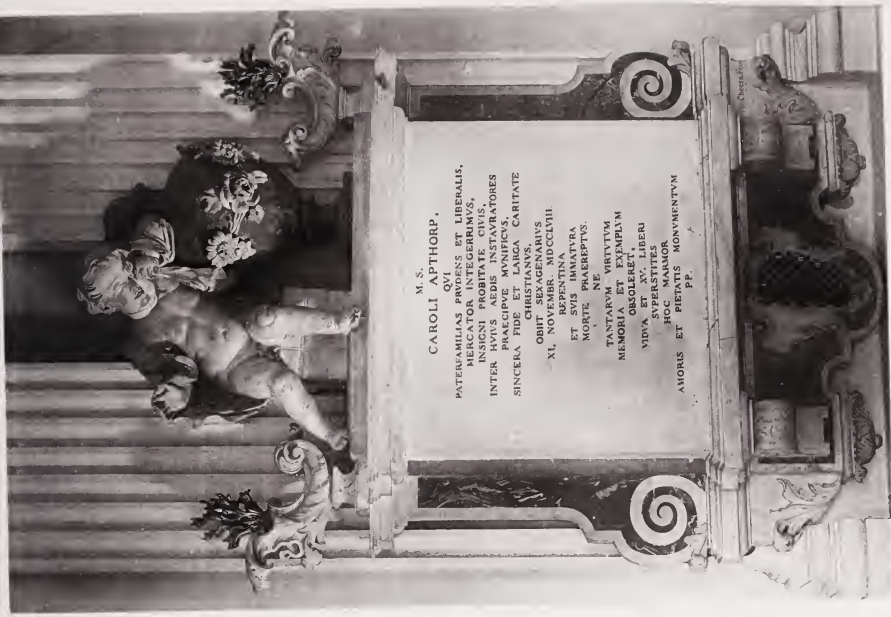 M. S.
CAROLI APTHORP,
QVI
PATERFAMILIAS PRVDENS ET LIBERALIS,
MERCATOR INTEGERRIMVS,
INSIGNI PROBITATE CIVIS,
INTER HVIVS AEDIS INSTAVRATORES
PRAECIPVE MVNIFICVS,
SINCERA FIDE ET LARGA CARITATE
CHRISTIANVS,
OBIIT SEXAGENARIVS
XI, NOVEMBR. MDCCLVIII.
REPENTINA
ET SVIS IMMATVRA
MORTE PRAEREPTVS.
NE
TANTARVM VIRTVTVM
MEMORIA ET EXEMPLVM
OBSOLERET,
VIDVA ET XV. LIBERI
SVPERSTITES
HOC MARMOR
AMORIS ET PIETATIS MONVMENTVM
PP.